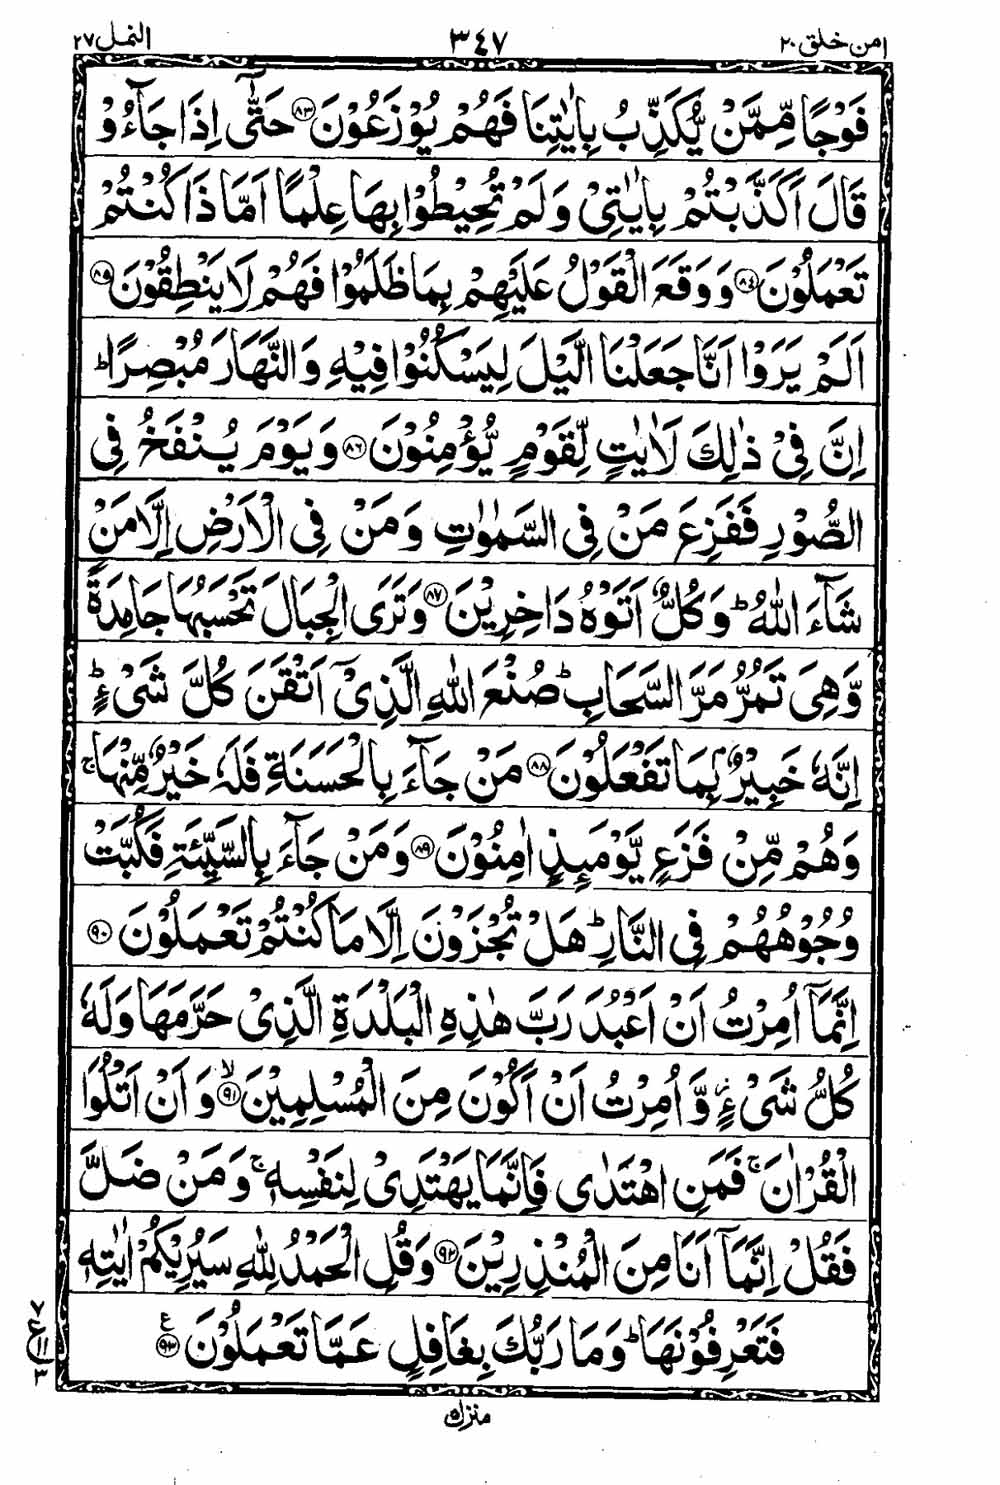 امن خلق ٢٠ ٣٤٧ النمل ٢٧
فَوْجًا مِّمَّنْ يُّكَذِّبُ بِاٰيٰتِنَا فَهُمْ يُوْزَعُوْنَ ﴿٨٣﴾ حَتّٰٓى اِذَا جَآءُوْ
قَالَ اَكَذَّبْتُمْ بِاٰيٰتِيْ وَلَمْ تُحِيْطُوْا بِهَا عِلْمًا اَمَّا ذَا كُنْتُمْ
تَعْمَلُوْنَ ﴿٨٤﴾ وَوَقَعَ الْقَوْلُ عَلَيْهِمْ بِمَا ظَلَمُوْا فَهُمْ لَا يَنْطِقُوْنَ ﴿٨٥﴾
اَلَمْ يَرَوْا اَنَّا جَعَلْنَا الَّيْلَ لِيَسْكُنُوْا فِيْهِ وَالنَّهَارَ مُبْصِرًا ؕ
اِنَّ فِيْ ذٰلِكَ لَاٰيٰتٍ لِّقَوْمٍ يُّؤْمِنُوْنَ ﴿٨٦﴾ وَيَوْمَ يُنْفَخُ فِي
الصُّوْرِ فَفَزِعَ مَنْ فِي السَّمٰوٰتِ وَمَنْ فِي الْاَرْضِ اِلَّا مَنْ
شَآءَ اللّٰهُ ؕ وَكُلٌّ اَتَوْهُ دَاخِرِيْنَ ﴿٨٧﴾ وَتَرَى الْجِبَالَ تَحْسَبُهَا جَامِدَةً
وَّهِيَ تَمُرُّ مَرَّ السَّحَابِ ؕ صُنْعَ اللّٰهِ الَّذِيْٓ اَتْقَنَ كُلَّ شَيْءٍ ؕ
اِنَّهٗ خَبِيْرٌۢ بِمَا تَفْعَلُوْنَ ﴿٨٨﴾ مَنْ جَآءَ بِالْحَسَنَةِ فَلَهٗ خَيْرٌ مِّنْهَا ۚ
وَهُمْ مِّنْ فَزَعٍ يَّوْمَىِٕذٍ اٰمِنُوْنَ ﴿٨٩﴾ وَمَنْ جَآءَ بِالسَّيِّئَةِ فَكُبَّتْ
وُجُوْهُهُمْ فِي النَّارِ ؕ هَلْ تُجْزَوْنَ اِلَّا مَا كُنْتُمْ تَعْمَلُوْنَ ﴿٩٠﴾
اِنَّمَآ اُمِرْتُ اَنْ اَعْبُدَ رَبَّ هٰذِهِ الْبَلْدَةِ الَّذِيْ حَرَّمَهَا وَلَهٗ
كُلُّ شَيْءٍ ؗ وَّاُمِرْتُ اَنْ اَكُوْنَ مِنَ الْمُسْلِمِيْنَ ﴿٩١﴾ ۙ وَاَنْ اَتْلُوَا
الْقُرْاٰنَ ۚ فَمَنِ اهْتَدٰى فَاِنَّمَا يَهْتَدِيْ لِنَفْسِهٖ ۚ وَمَنْ ضَلَّ
فَقُلْ اِنَّمَآ اَنَا مِنَ الْمُنْذِرِيْنَ ﴿٩٢﴾ وَقُلِ الْحَمْدُ لِلّٰهِ سَيُرِيْكُمْ اٰيٰتِهٖ
فَتَعْرِفُوْنَهَا ؕ وَمَا رَبُّكَ بِغَافِلٍ عَمَّا تَعْمَلُوْنَ ﴿٩٣﴾ ع
٧
ع ١١
٣
منزل ٥